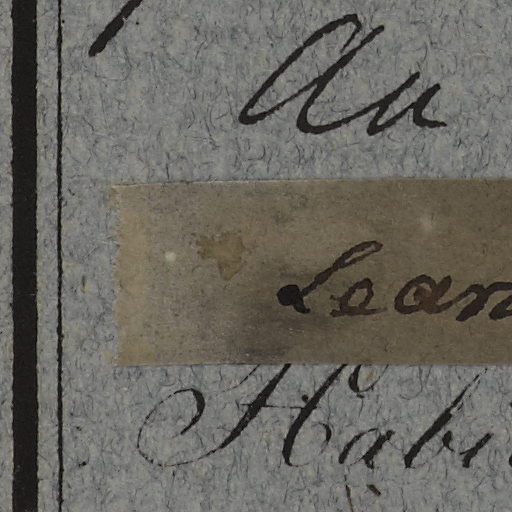 Au
Lean
Habi